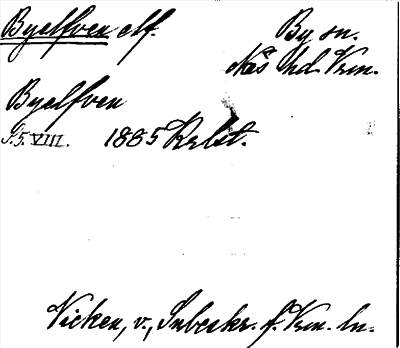 Byelfven elf.
By sn.
Näs hd Vrm.
Byelfven
S. 5. VIII. 1885 Krbst.
Vicken, v., Inbeskr. f. Vrm. ln.